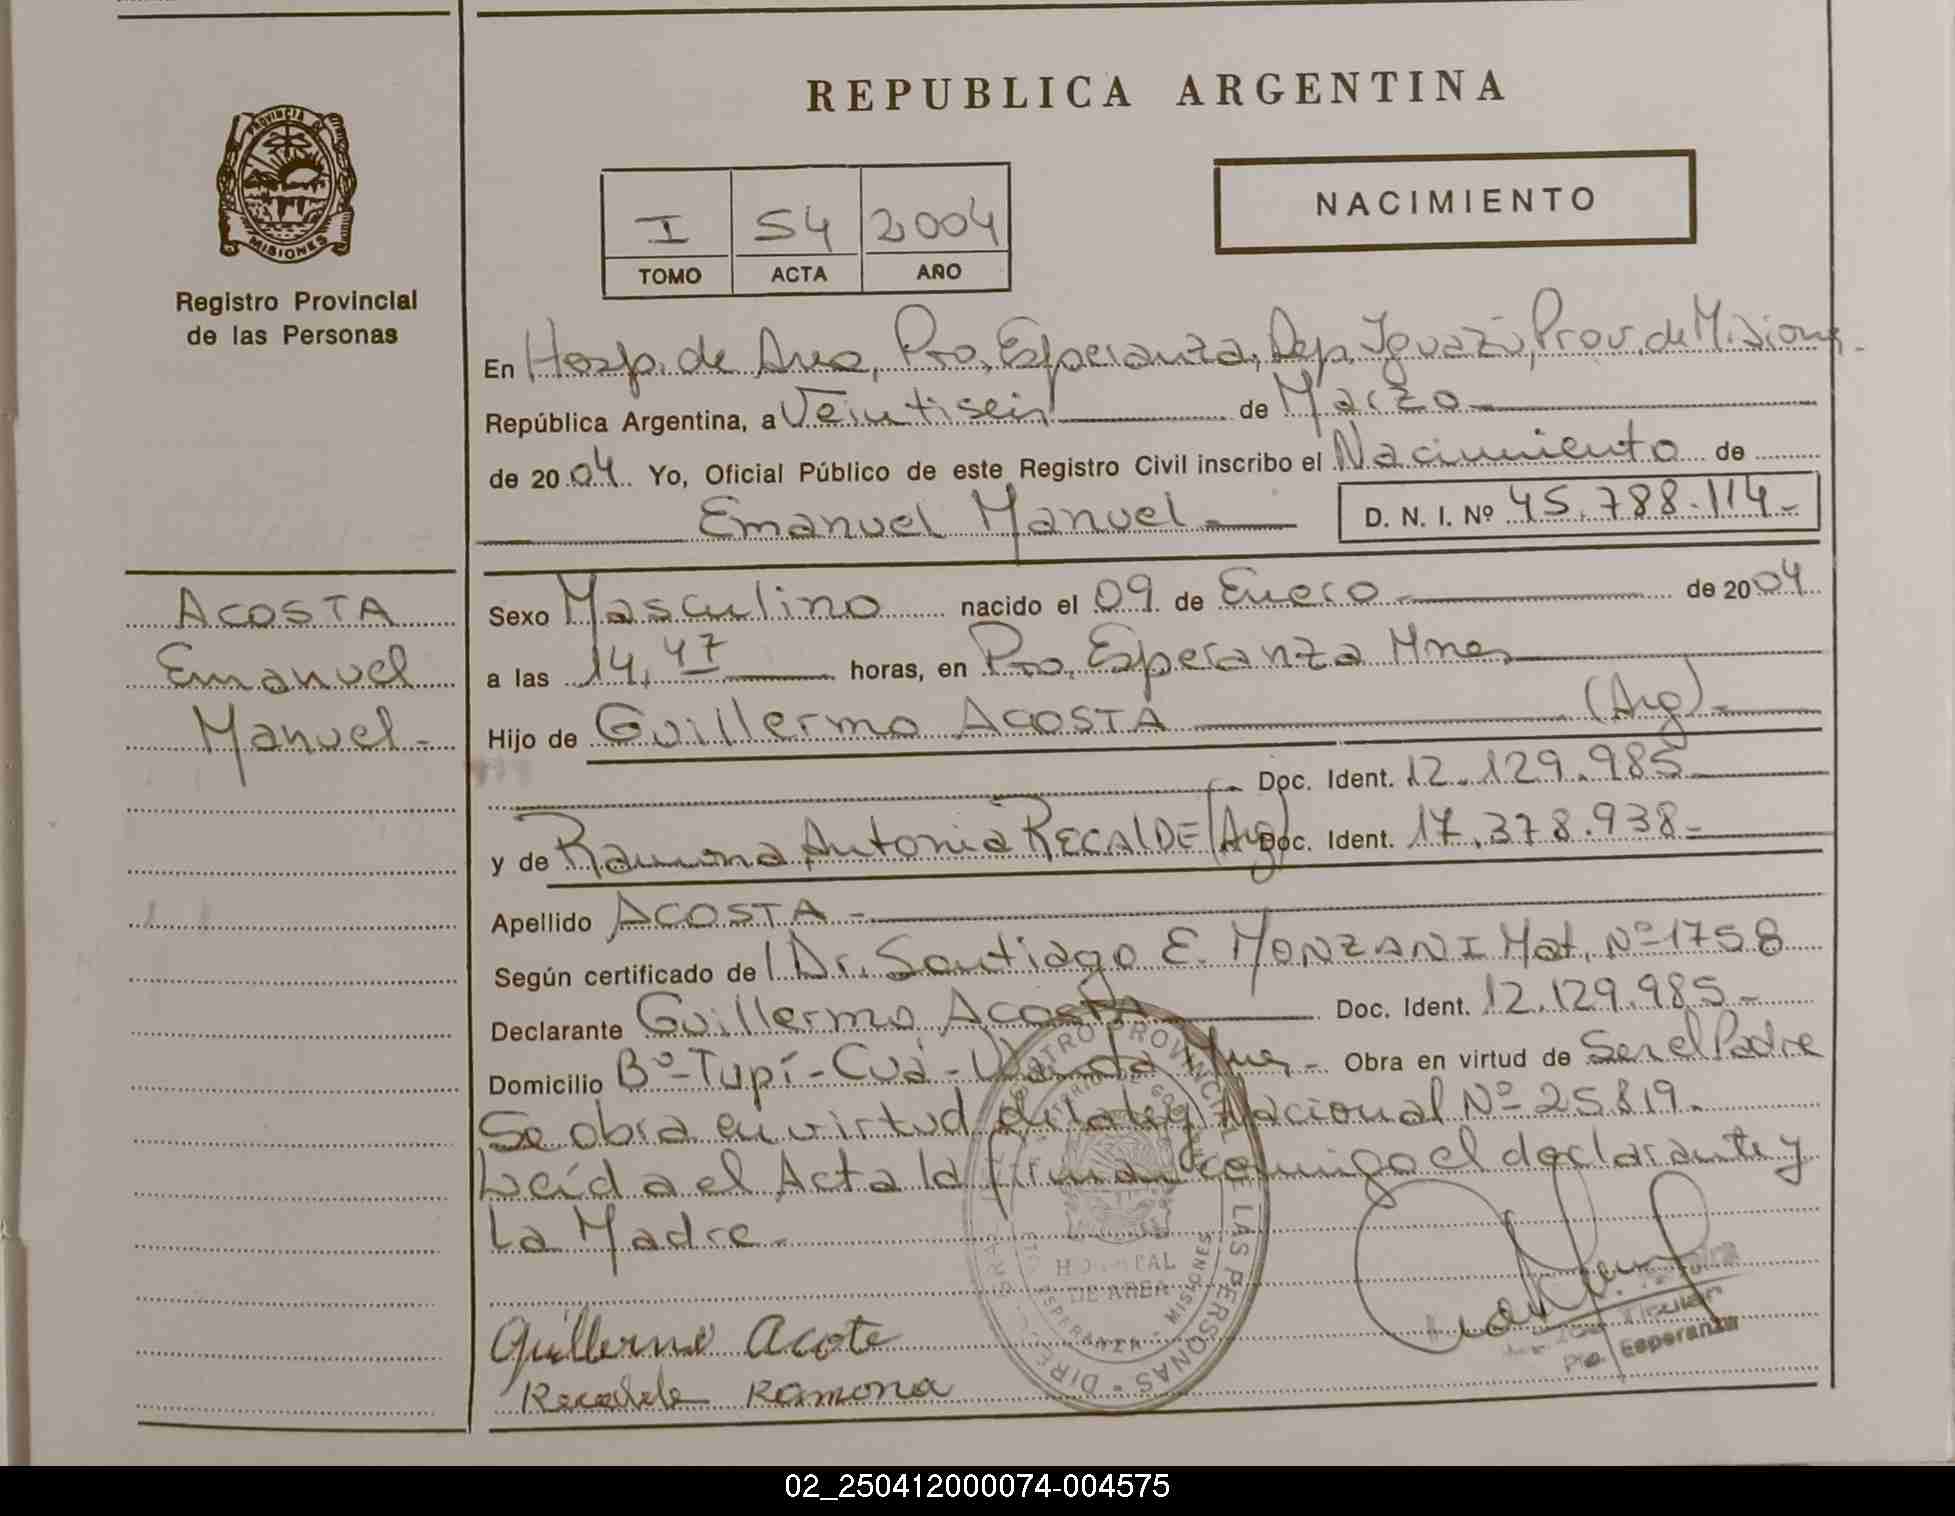 REPUBLICA ARGENTINA
PROVINCIA DE MISIONES
Registro Provincial
de las Personas
I 54 2004
TOMO ACTA AÑO
NACIMIENTO
En Hosp. de Area, Pto. Esperanza, Dep. Iguazú, Prov. de Misiones.
República Argentina, a Veintiseis de Marzo
de 2004 Yo, Oficial Público de este Registro Civil inscribo el Nacimiento de
Emanuel Manuel D. N. I. Nº 45.788.114.-
ACOSTA
Emanuel
Manuel.-
Sexo Masculino nacido el 09 de Enero de 2004
a las 14,47 horas, en Pto. Esperanza Mnes
Hijo de Guillermo ACOSTA (Arg).-
Doc. Ident. 12.129.985
y de Ramona Antonia RECALDE (Arg) Doc. Ident. 17.378.938.-
Apellido ACOSTA.-
Según certificado de Dr. Santiago E. MONZANI Mat. Nº 1758
Declarante Guillermo Acosta Doc. Ident. 12.129.985.-
Domicilio Bº Tupí-Cuá-Wanda Mnes.- Obra en virtud de Ser el Padre
Se obra en virtud de la ley Nacional Nº 25.819.
Leída el Acta la firman conmigo el declarante y
La Madre.-
REGISTRO PROVINCIAL DE LAS PERSONAS
HOSPITAL
DE AREA
ESPERANZA - MISIONES
Guillermo Acote
Recalde Ramona
Pto. Esperanza
02_250412000074-004575